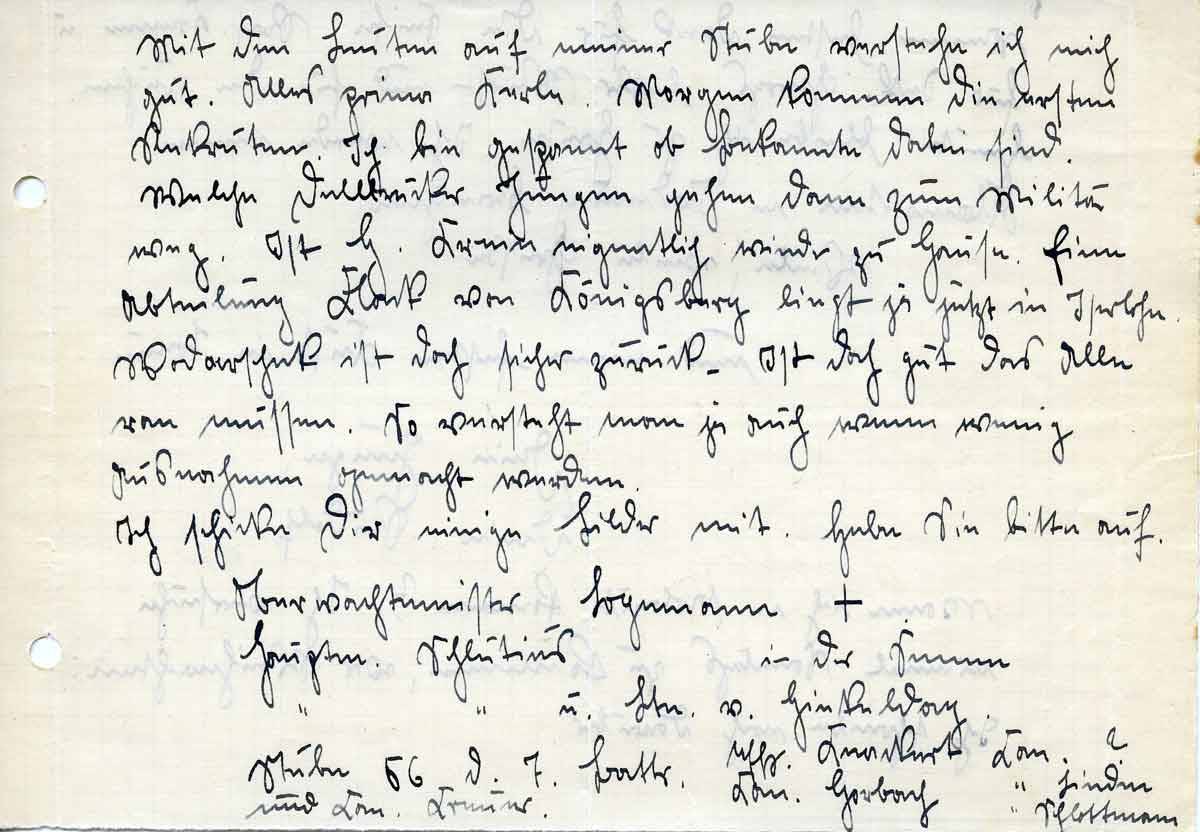 Mit den Leuten auf meiner Stube verstehe ich mich
gut. Alles prima Kerle. Morgen kommen die ersten
Rekruten. Ich bin gespannt ob Bekannte dabei sind.
Welche Dellbrücker Jungen gehen dann zum Militär
weg. Ist H. Krein eigentlich wieder zu Hause. Eine
Abteilung Flak von Königsberg liegt ja jetzt in Iserlohn.
Wodarschek ist doch sicher zurück. Ist doch gut das Alle
ran müssen. So versteht man ja auch wenn wenig
Ausnahmen gemacht werden.
Ich schicke Dir einige Bilder mit. Hebe Sie bitte auf.
Oberwachtmeister Logemann +
Hauptm. Schlutius in der Sonne
" " u. Ltn. v. Hinkeldey.
Stube 56 d. 7. Battr. Uffz. Knackert Kan. ?
Kan. Horbach " Linden
und Kan. Kremer. " Schlottmann